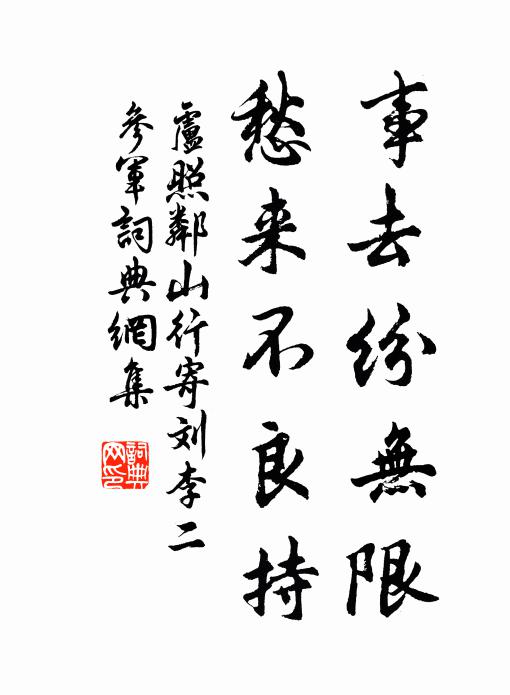 事去紛無限
愁来不良持
盧照鄰山行寄刘李二
參軍詞典網集
詞典
网印